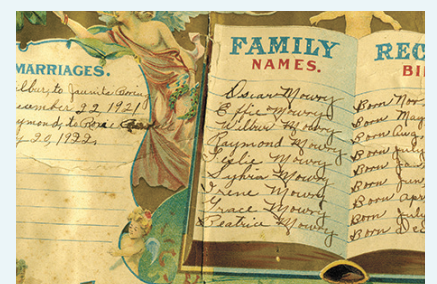 MARRIAGES.
Wilbur to Juanita
December 22 1921
Raymond to Rose
20, 1922
FAMILY
NAMES.
Oscar Mowry
Effie Mowry
Wilbur Mowry
Raymond Mowry
Mowry
Sylvia Mowry
Irene Mowry
Grace Mowry
Beatrice Mowry
REC
BI
Born Nov.
Born May
Born Aug.
Born July
Born Jan
Born Jun
Born Apr
Born July
Born Dec